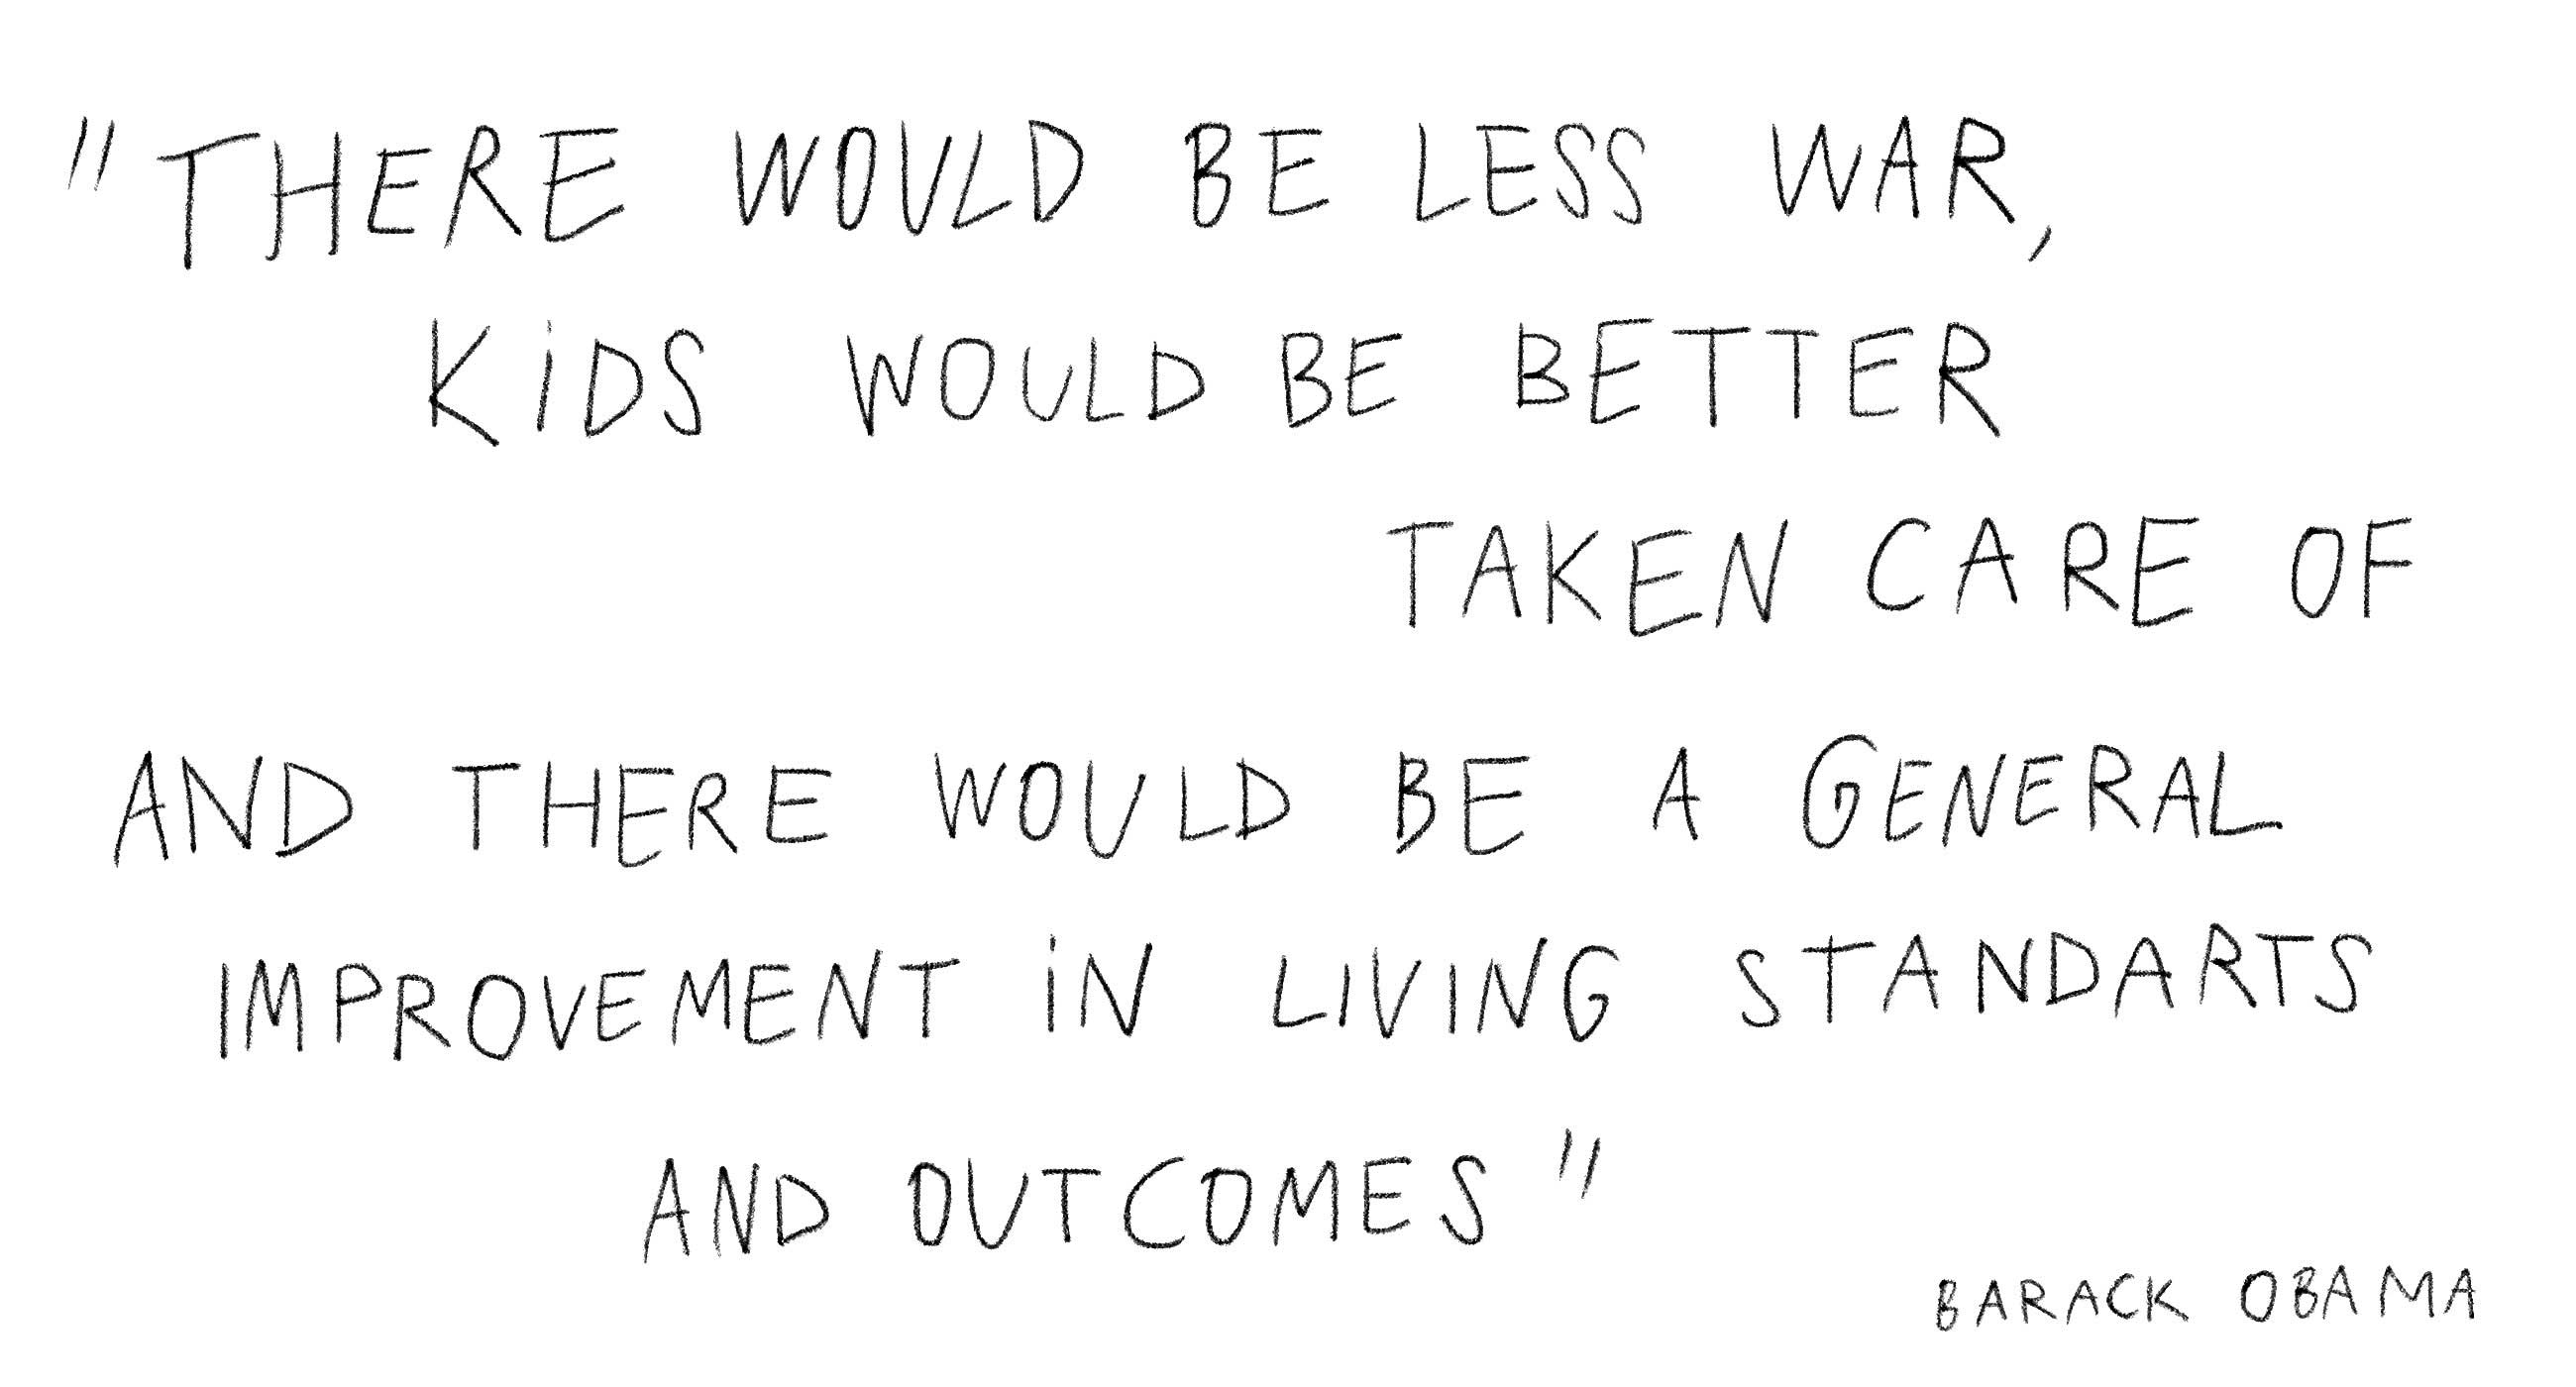 "THERE WOULD BE LESS WAR,
KiDS WOULD BE BETTER
TAKEN CARE OF
AND THERE WOULD BE A GENERAL
IMPROVEMENT iN LIVING STANDARTS
AND OUTCOMES"
BARACK OBAMA